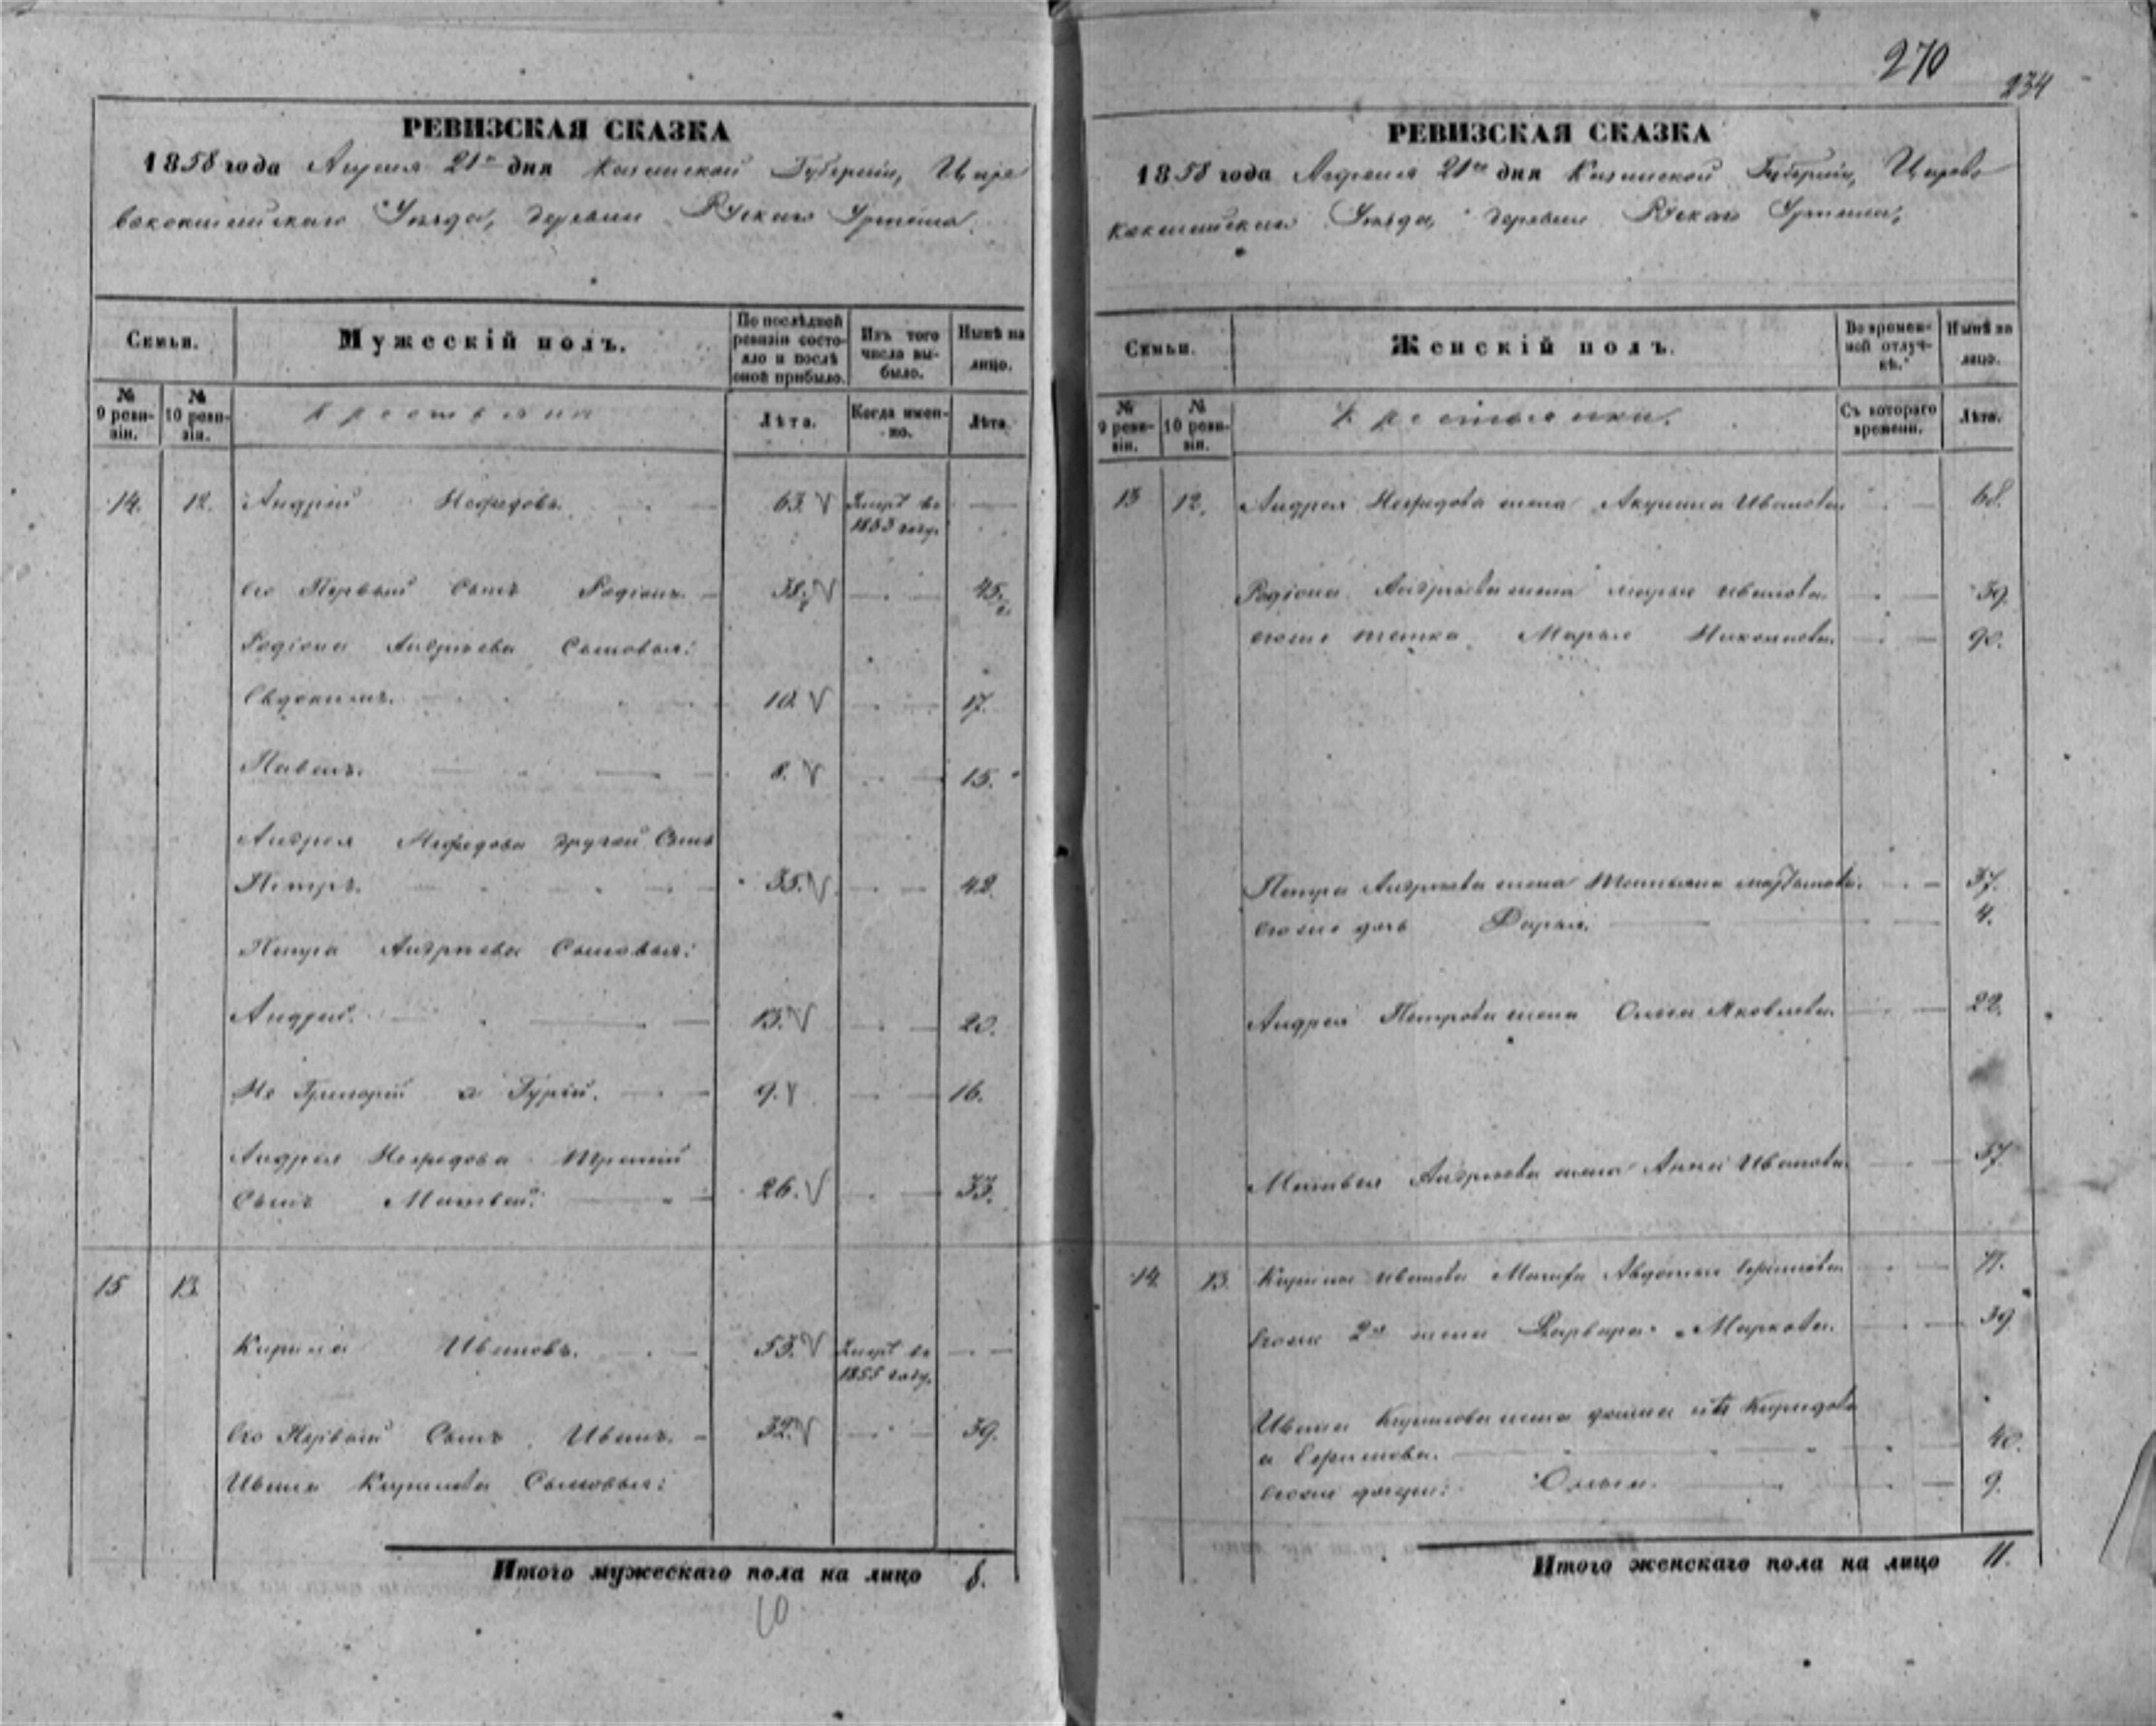 270
234
РЕВИЗСКАЯ СКАЗКА
1858 года Апреля 21го дня Казанской Губернiи, Царе
вококшайскаго Уѣзда, деревни Рускаго Уртема.
Семьи.
Мужескiй полъ.
По послѣдней ревизiи состояло и послѣ оной прибыло.
Изъ того числа выбыло.
Нынѣ на лицо.
№ 9 ревизiи.
№ 10 ревизiи.
Крестьяне
Лѣта.
Когда именно.
Лѣта.
14. 12. Андрей Нефедовъ. 63. Умеръ въ 1853 году.
Его Первый Сынъ Родiонъ. 38. 45.
Родiона Андреева Сыновья:
Евдокимъ. 10. 17.
Павелъ. 8. 15.
Андрея Нефедова другой Сынъ
Петръ. 35. 42.
Петра Андреева Сыновья:
Андрей. 13. 20.
Не Григорiй а Гурiй. 9. 16.
Андрея Нефедова Третiй
Сынъ Матвей. 26. 33.
15 13.
Кирила Ивановъ. 53. Умеръ въ 1855 году.
Его Первый Сынъ Иванъ. 32. 39.
Ивана Кирилова Сыновья:
Итого мужескаго пола на лицо 8.
10
РЕВИЗСКАЯ СКАЗКА
1858 года Апреля 21го дня Казанской Губернiи, Царево
кокшайскаго Уѣзда, деревни Рускаго Уртема,
Семьи.
Женскiй полъ.
Во временной отлучкѣ.
Нынѣ на лицо.
№ 9 ревизiи.
№ 10 ревизiи.
Крестьянки.
Съ котораго времени.
Лѣта.
13 12. Андрея Нефедова жена Акулина Иванова 68.
Родiона Андреева жена Марья Иванова 39.
его же тетка Марья 90.
Петра Андреева жена Татьяна 37.
его же дочь Дарья. 4.
Андрея Петрова жена Ольга Яковлева. 22.
Матвея Андреева жена Анна Иванова 37.
14 13. Кирилы Иванова Авдотья 71.
Его же 2я жена Варвара Маркова. 39.
Ивана Кирилова жена
а Ефимова. 40.
его же дочери: Ольга. 9.
Итого женскаго пола на лицо 11.